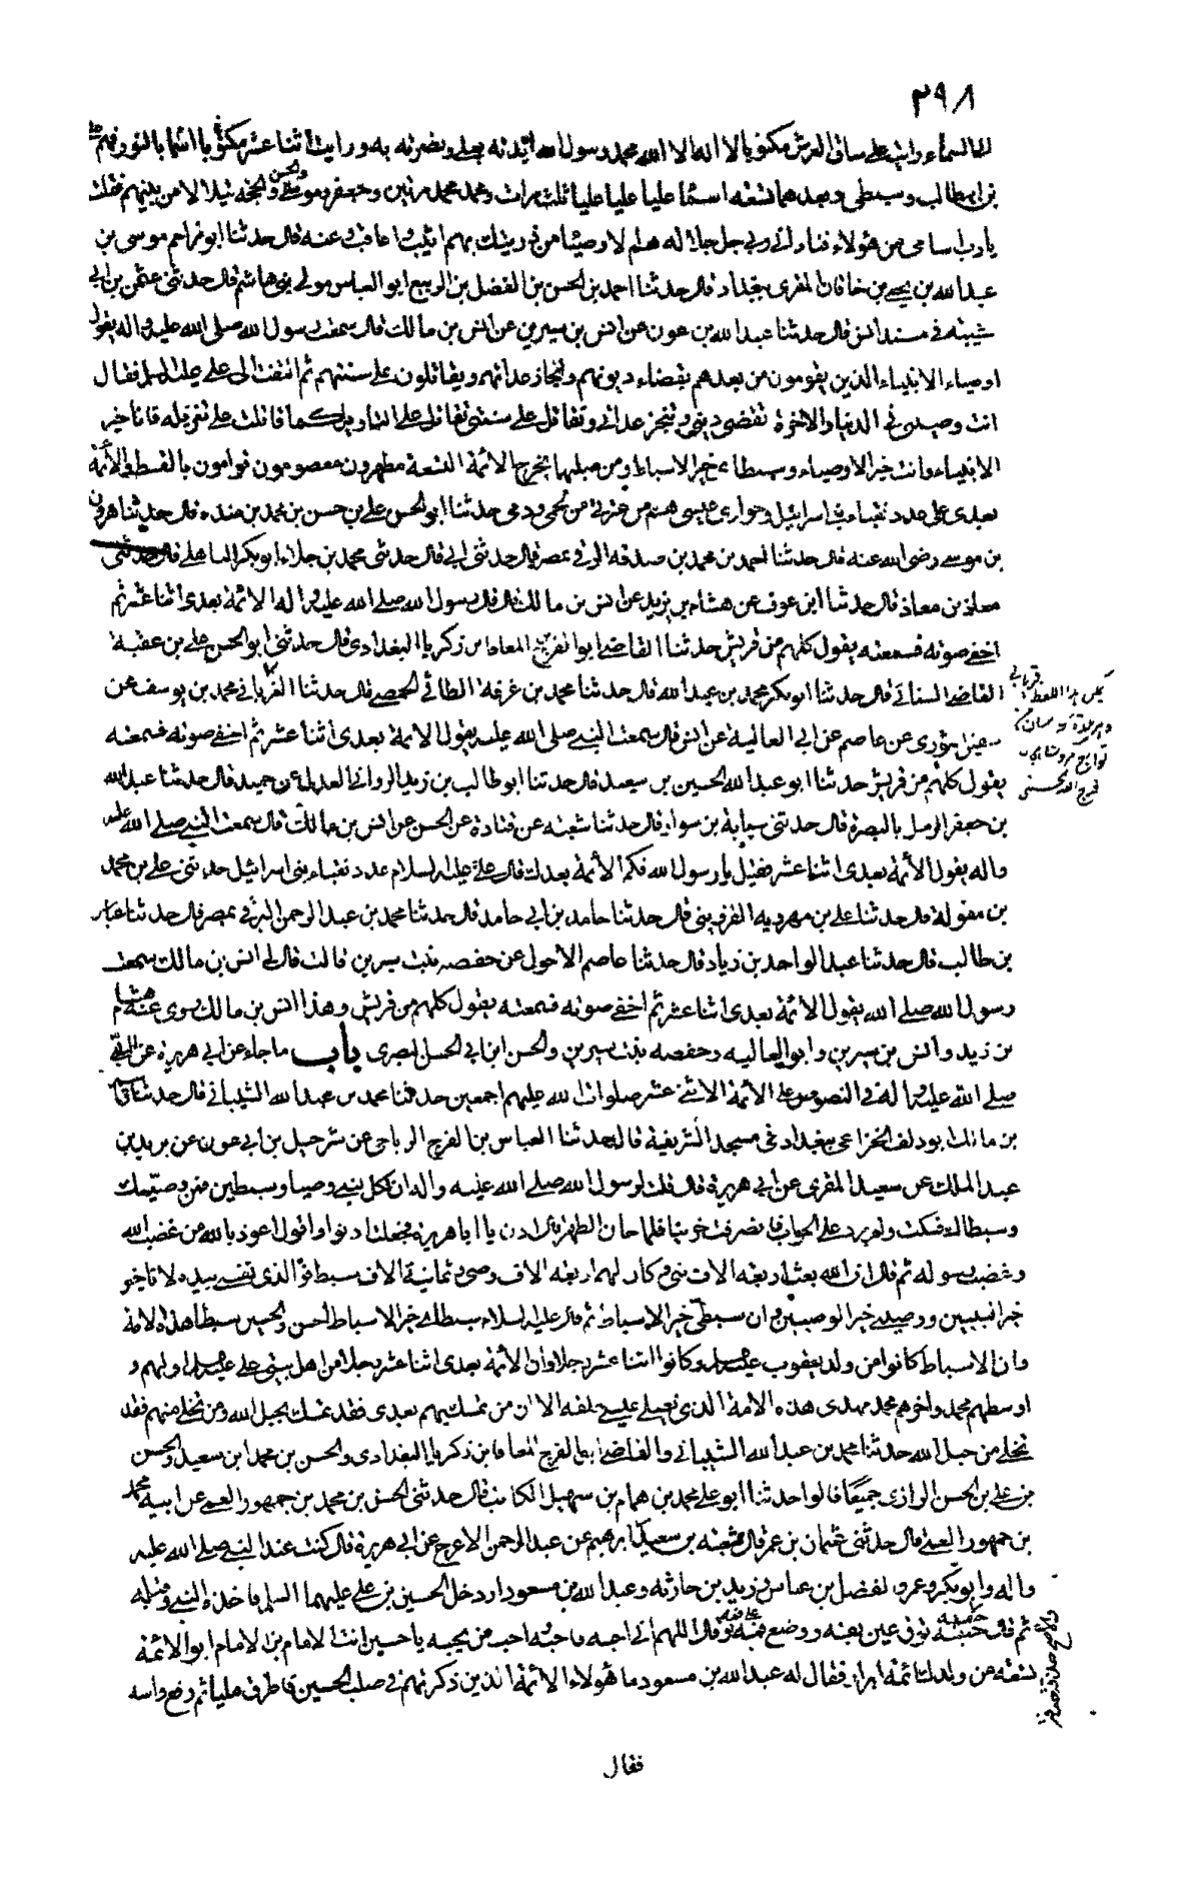 ٢٩٨
السماء رايت على ساق العرش مكتوبا لا اله الا الله محمد رسول الله ايدته بعلي ونصرته به ورايت اثنا عشر مكتوبا اسما بالنور فهم
بن ابيطالب وسبطي وبعدهما تسعه اسما عليا عليا عليا ثلث مرات ومحمد محمد مرتين وجعفر وموسى والحسن والحجة يتلالا من بينهم فقلت
يا رب اسامى من هؤلاء فناداني ربي جل جلاله هم الاوصيا من ذريتك بهم اثيب واعاقب وعنه قال حدثنا ابو مزاحم موسى بن
عبد الله بن يحيى بن خاقان المقرى ببغداد قال حدثنا احمد بن الحسن بن الفضل بن الربيع ابو العباس مولى بني هاشم قال حدثني عثمن بن ابي
شيبه في مسند انس قال حدثنا عبد الله بن عون عن انس بن سيرين عن انس بن مالك قال سمعت رسول الله صلى الله عليه واله يقول
اوصياء الانبياء الذين يقومون من بعدهم بقضاء ديونهم وانجاز عداتهم ويقاتلون على سنتهم ثم التفت الى علي عليه السلم فقال
انت وصيي في الدنيا والاخرة تقضي ديني وتنجز عداتي وتقاتل على سنتي تقاتل على التاويل كما قاتلت على تنزيله فانا خير
الانبياء وانت خير الاوصياء وسبطاي خير الاسباط ومن صلبهما يخرج الائمة التسعة مطهرون معصومون قوامون بالقسط والائمة
بعدي على عدد نقباء بني اسرائيل وحواري عيسى هم من عترتي من لحمي ودمي حدثنا ابو الحسن علي بن حسن بن محمد بن منده قال حدثنا هرون
بن موسى رضي الله عنه قال حدثنا احمد بن محمد بن صدقه الرقي بمصر قال حدثني ابي قال حدثني محمد بن خلاد ابو بكر الباهلي قال حدثني
معاذ بن معاذ قال حدثنا ابن عوف عن هشام بن يزيد عن انس بن مالك قال قال رسول الله صلى الله عليه واله الائمة بعدى اثنا عشر ثم
اخفي صوته فسمعته يقول كلهم من قريش حدثنا القاضي ابو الفرج المعافا بن زكريا البغدادي قال حدثني ابو الحسن علي بن عقبة
القاضي قال حدثنا ابو بكر محمد بن عبد الله قال حدثنا محمد بن عرفة الطائي الحمصي قال حدثنا الفريابي محمد بن يوسف عن
سفين ثوري عن عاصم عن ابي العاليه عن انس قال سمعت النبي صلى الله عليه يقول الائمة بعدى اثنا عشر ثم اخفى صوته فسمعته
يقول كلهم من قريش حدثنا ابو عبد الله الحسين بن سعيد قال حدثنا ابو طالب بن زيد العدل عن حميد قال حدثنا عبد الله
بن جعفر الرملي بالبصرة قال حدثني شبابة بن سوار قال حدثنا شعبه عن قتادة عن الحسن عن انس بن مالك قال سمعت النبي صلى الله عليه
واله يقول الائمة بعدى اثنا عشر فقيل يا رسول الله فكم الائمة بعدك قال عليه السلام عدد نقباء بني اسرائيل حدثني علي بن محمد
بن مقوله قال حدثنا علي بن مهرويه القزويني قال حدثنا حامد بن ابي حامد قال حدثنا محمد بن عبد الرحمن البرقي بمصر قال حدثنا
بن طالب قال حدثنا عبد الواحد بن زياد قال حدثنا عاصم الاحول عن حفصه بنت سيرين قالت قال لي انس بن مالك سمعت
رسول الله صلى الله يقول الائمة بعدى اثنا عشر ثم اخفى صوته فسمعته يقول كلهم من قريش وهذا انس بن مالك روى عنه هشام
بن زيد وانس بن سيرين وابو العاليه وحفصه بنت سيرين والحسن ابن ابي الحسن البصرى باب ما جاء عن ابي هريرة عن النبي
صلى الله عليه واله في النصوص على الائمة الاثني عشر صلوات الله عليهم اجمعين حدثنا محمد بن عبد الله الشيباني قال حدثنا
بن مالك ابو دلف الخزاعي ببغداد في مسجد الشرقية قال حدثنا العباس بن الفرج الرياحي عن شرحبيل بن ابي عون عن يزيد بن
عبد الملك عن سعيد المقرى عن ابي هريرة قال قلت لرسول الله صلى الله عليه واله ان لكل نبي وصيا وسبطين فمن وصيك
وسبطاك فسكت ولم يرد علي الجواب فانصرفت حزينا فلما حان الظهر قال ادن يا ابا هريرة فجعلت ادنو واقول اعوذ بالله من غضب الله
وغضب رسوله ثم قال ان الله بعث اربعه الاف نبي وكان لهم اربعه الاف وصي وثمانية الاف سبط فو الذي نفسي بيده لانا خير
خير النبيين ووصيي خير الوصيين وان سبطي خير الاسباط ثم قال عليه السلام سبطاي خير الاسباط الحسن والحسين سبطا هذه الامة
وان الاسباط كانوا من ولد يعقوب وكانوا اثنا عشر رجلا وان الائمة بعدى اثنا عشر رجلا من اهل بيتي علي اولهم و
اوسطهم محمد واخرهم محمد مهدى هذه الامة الذي يصلي عيسى خلفه الا ان من تمسك بهم بعدى فقد تمسك بحبل الله ومن تخلى منهم فقد
تخلى من حبل الله حدثنا محمد بن عبد الله الشيباني والقاضي ابو الفرج المعافا بن زكريا البغدادى والحسن بن محمد ابن سعيد والحسن
بن علي بن الحسن الرازى جميعا قالوا حدثنا ابو علي محمد بن همام بن سهيل الكاتب قال حدثني الحسن بن محمد بن جمهور العمي عن ابيه محمد
بن جمهور العمي قال حدثني عثمان بن عمر قال شعبه بن سعيد ابرهيم عن عبد الرحمن الاعرج عن ابي هريرة قال كنت عند النبي صلى الله عليه
واله وابو بكر وعمر والفضل بن عباس وزيد بن حارثه وعبد الله بن مسعود اذ دخل الحسين بن علي عليهما السلم فاخذه النبي وقبله
ثم قال حبقة ترق عين بقه ووضع فمه وقال اللهم اني احبه فاحبه واحب من يحبه يا حسين انت الامام بن الامام ابو الائمة
تسعه من ولدك ائمة ابرار فقال له عبد الله بن مسعود ما هؤلاء الائمة الذين ذكرتهم في صلب الحسين فاطرق مليا ثم رفع راسه
فقال